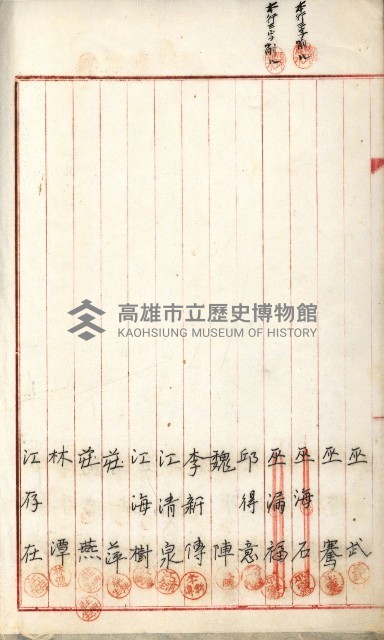 本行三字削除
本行三字削除
巫武
巫騫
巫海石
巫漏福
邱得意
魏陣
李新傳
江清泉
江海樹
莊萍
莊燕
林潭
江存在
高雄市立歷史博物館
KAOHSIUNG MUSEUM OF HISTORY